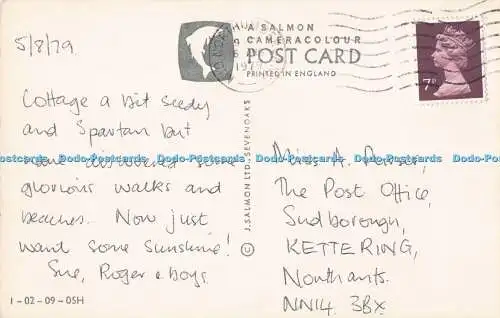 5/8/79
A SALMON
CAMERACOLOUR
POST CARD
PRINTED IN ENGLAND
7P
Cottage a bit seedy
and Spartan but
have discovered some
glorious walks and
beaches. Now just
want some sunshine!
Sue, Roger & boys
1-02-09-05H
© J. SALMON LTD., SEVENOAKS
Miss A.
The Post Office,
Sudborough,
KETTERING,
Northants.
NN14 3BX
Dodo-Postcards Dodo-Postcards Dodo-Postcards Dodo-Postcards Dodo-Postcards Dodo-Postcards